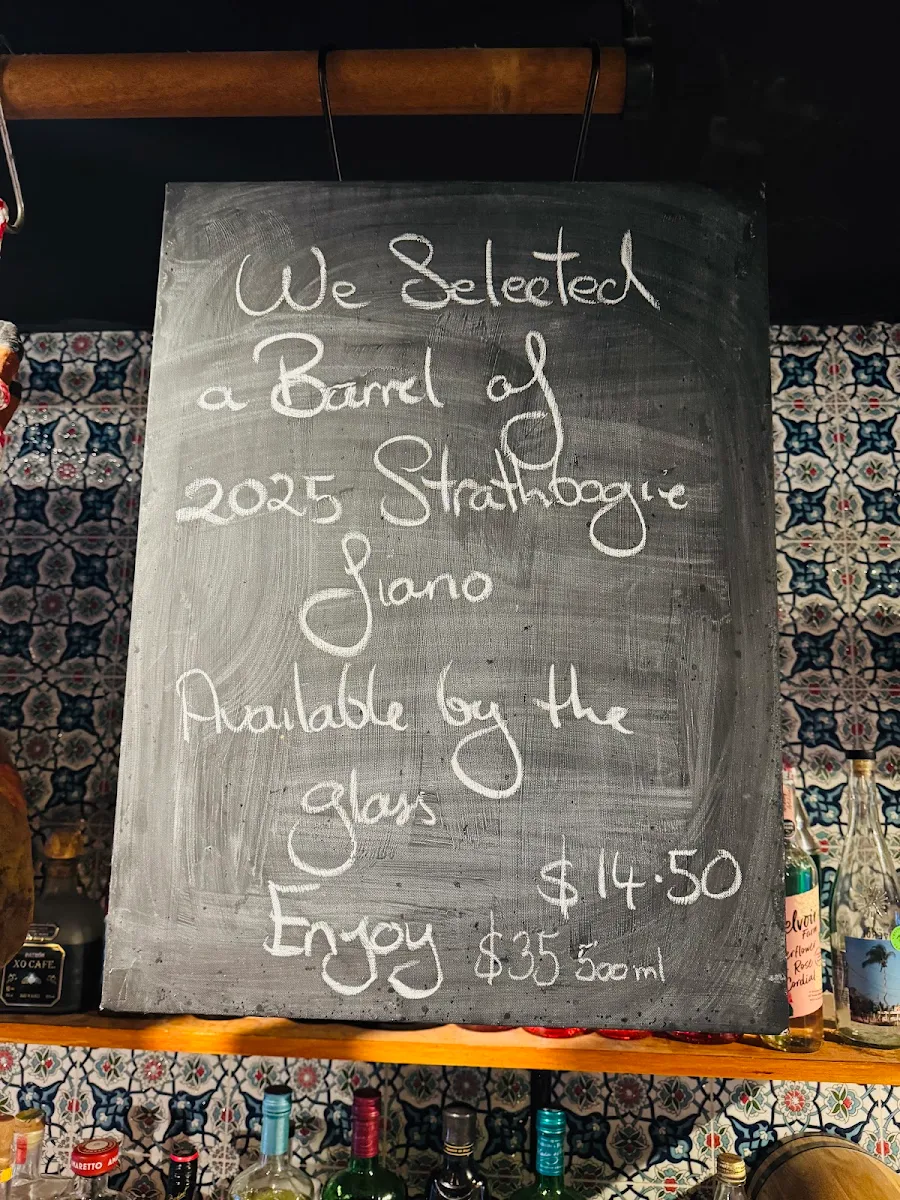 We Selected
a Barrel of
2025 Strathbogie
fiano
Available by the
glass
$14.50
Enjoy $35 500ml
PATRÓN
XO CAFE
elvoir
Farm
erflower
Rose
Cordial
ARETTO